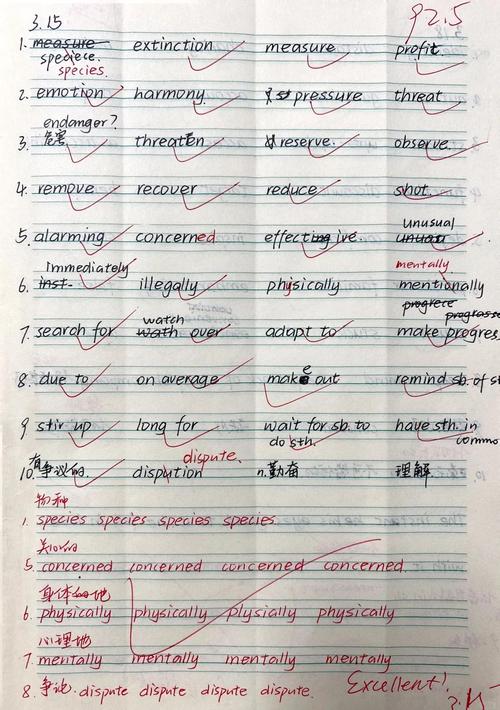 3.15
92.5
1. measure extinction measure profit.
speciece.
species.
2. emotion harmony. pressure threat
endanger?
3. 危害 threaten reserve. observe.
4. remove recover reduce shot.
unusual
5. alarming concerned effecting ive. unusu
immediately mentally.
6. inst. illegally physically mentionally
watch progrece
progresse
7. search for wath over adapt to make progres
8. due to on average make out remind sb. of st
e
9 stir up long for wait for sb. to have sth. in
do sth. commo
dispute.
有
10. 争议的. dispution n.勤奋 理解
物种
1. species species species species
关心的
5. concerned concerned concerned concerned
身体的地
6. physically physically plysially physically
心理地
7. mentally mentally mentally mentally
8. 争论. dispute dispute dispute dispute.
Excellent!